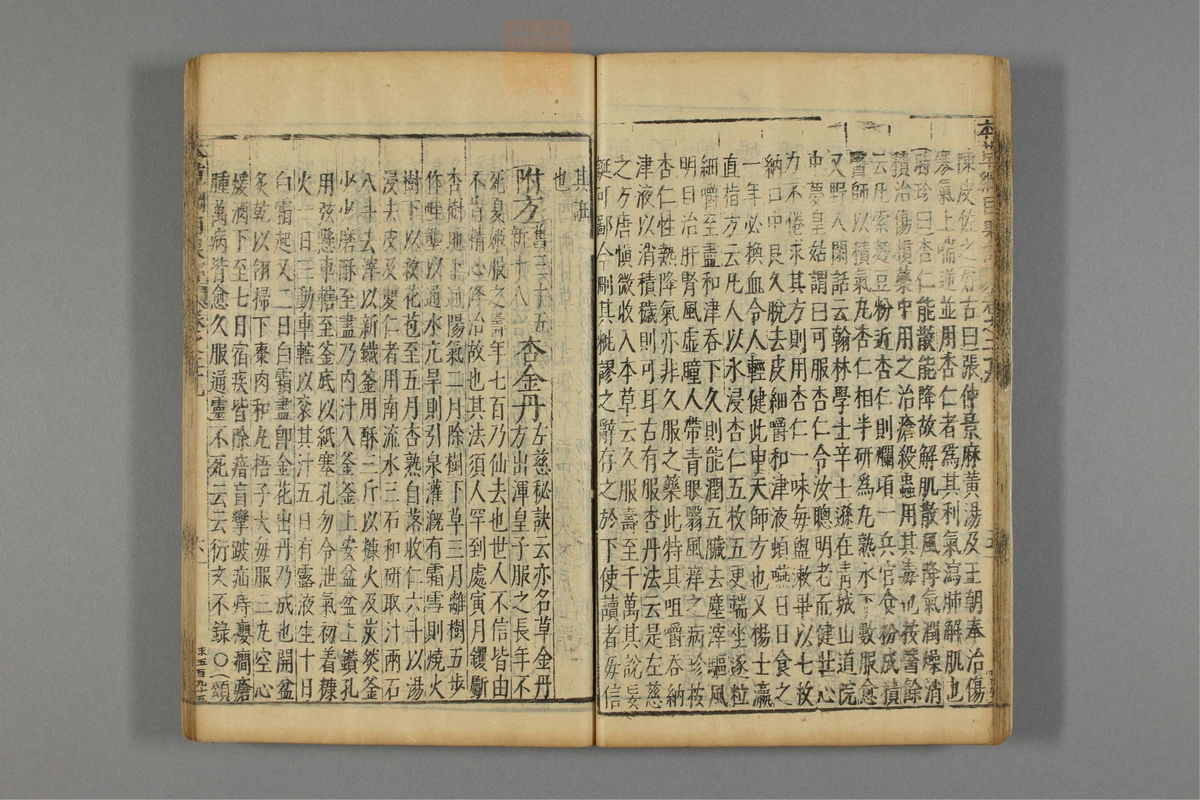 陳皮佐之〇元古曰張仲景麻黃湯及王朝奉治傷
寒氣上喘逆並用杏仁者為其利氣瀉肺解肌也
時珍曰杏仁能散能降故解肌散風降氣潤燥消
積治傷損藥中用之治瘡殺蟲用其毒也按醫餘
云凡索麪豆粉近杏仁則爛頃一兵官食粉成積
醫師以積氣丸杏仁相半研為丸熟水下數服愈
又野人閑話云翰林學士辛士遜在青城山道院
中夢皇姑謂曰可服杏仁令汝聰明老而健壯心
力不倦求其方則用杏仁一味每盥漱畢以七枚
納口中良久脫去皮細嚼和津液頓嚥日日食之
一年必換血令人輕健此申天師方也又楊士瀛
直指方云凡人以水浸杏仁五枚五更端坐逐粒
細嚼至盡和津吞下久則能潤五臟去塵滓驅風
明目治肝腎風虛瞳人帶青眼翳風痒之病珍按
杏仁性熱降氣亦非久服之藥此特其咀嚼吞納
津液以消積穢則可耳古有服杏丹法云是左慈
之方唐慎微收入本草云久服壽至千萬其說妄
誕可鄙今刪其紕謬之辭存之於下使讀者毋信
其誑
也
附方舊三十五新十八杏金丹左慈秘訣云亦名草金丹
方出渾皇子服之長年不
死夏姬服之壽年七百乃仙去也世人不信皆由
不肯精心修治故也其法須人罕到處寅月钁斸
杏樹地下通陽氣二月除樹下草三月離樹五步
作畦壟以通水亢旱則引泉灌溉有霜雪則燒火
樹下以救花苞至五月杏熟自落收仁六斗以湯
浸去皮及雙仁者用南流水三石和研取汁兩石
八斗去滓以新鐵釜用酥三斤以糠火及炭燃釜
少少磨酥至盡乃內汁入釜釜上安盆盆上鑽孔
用弦懸車轄至釜底以紙塞孔勿令泄氣初着糠
火一日三動車轄以衮其汁五日有露液生十日
白霜起又二日白霜盡即金花出丹乃成也開盆
炙乾以翎掃下棗肉和丸梧子大每服三丸空心
媛酒下至七日宿疾皆除瘖盲攣跛疝痔癭癎瘡
腫萬病皆愈久服通靈不死云云衍文不錄〇頌